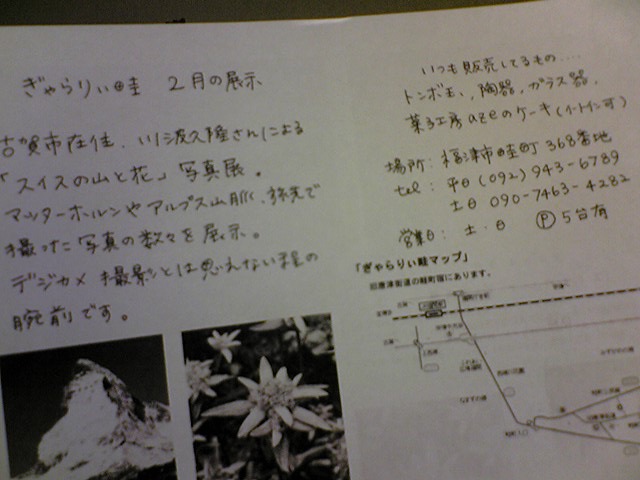 ぎゃらりぃ畦 2月の展示
古賀市在住、川波久隆さんによる
「スイスの山と花」写真展。
マッターホルンやアルプス山脈、旅先で
撮った写真の数々を展示。
デジカメ撮影とは思えない程の
腕前です。
いつも販売してるもの....
トンボ玉、陶器、ガラス器、
菓子工房azeのケーキ(イートイン可)
場所: 福津市畦町368番地
tel: 平日(092)943-6789
土日 090-7463-4282
営業日: 土・日 Ⓟ5台有
「ぎゃらりぃ畦マップ」
旧唐津街道の畦町宿にあります。